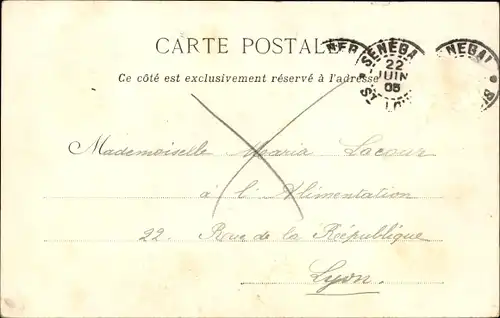 CARTE POSTALE
SENEGAL
22
JUIN
05
ST LOUIS
SENEGAL
Ce côté est exclusivement réservé à l'adresse
Mademoiselle Maria Lacour
à l'Alimentation
22. Rue de la République
Lyon.